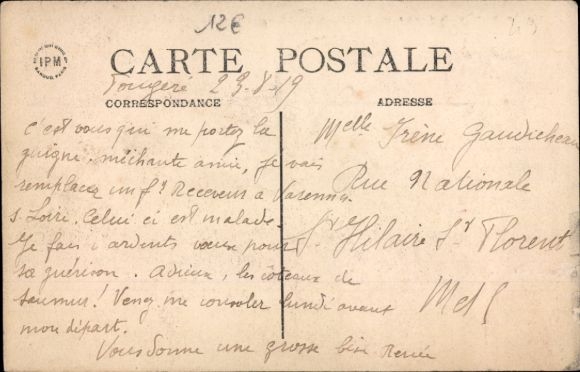 12€
CARTE POSTALE
IPM
Fougeré 23-8-19
CORRESPONDANCE
ADRESSE
C'est vous qui me portez la
guigne, méchante amie, je vais
remplacer un f. Receveur à Varennes
s. Loire. Celui ci est malade.
Je fais d'ardents vœux pour
sa guérison. Adieux, les côteaux de
Saumur! Venez me consoler lundi avant
mon départ.
Vous donne une grosse bise Renée
Melle Irène Gaudicheau
Rue Nationale
St Hilaire St Florent
M et L